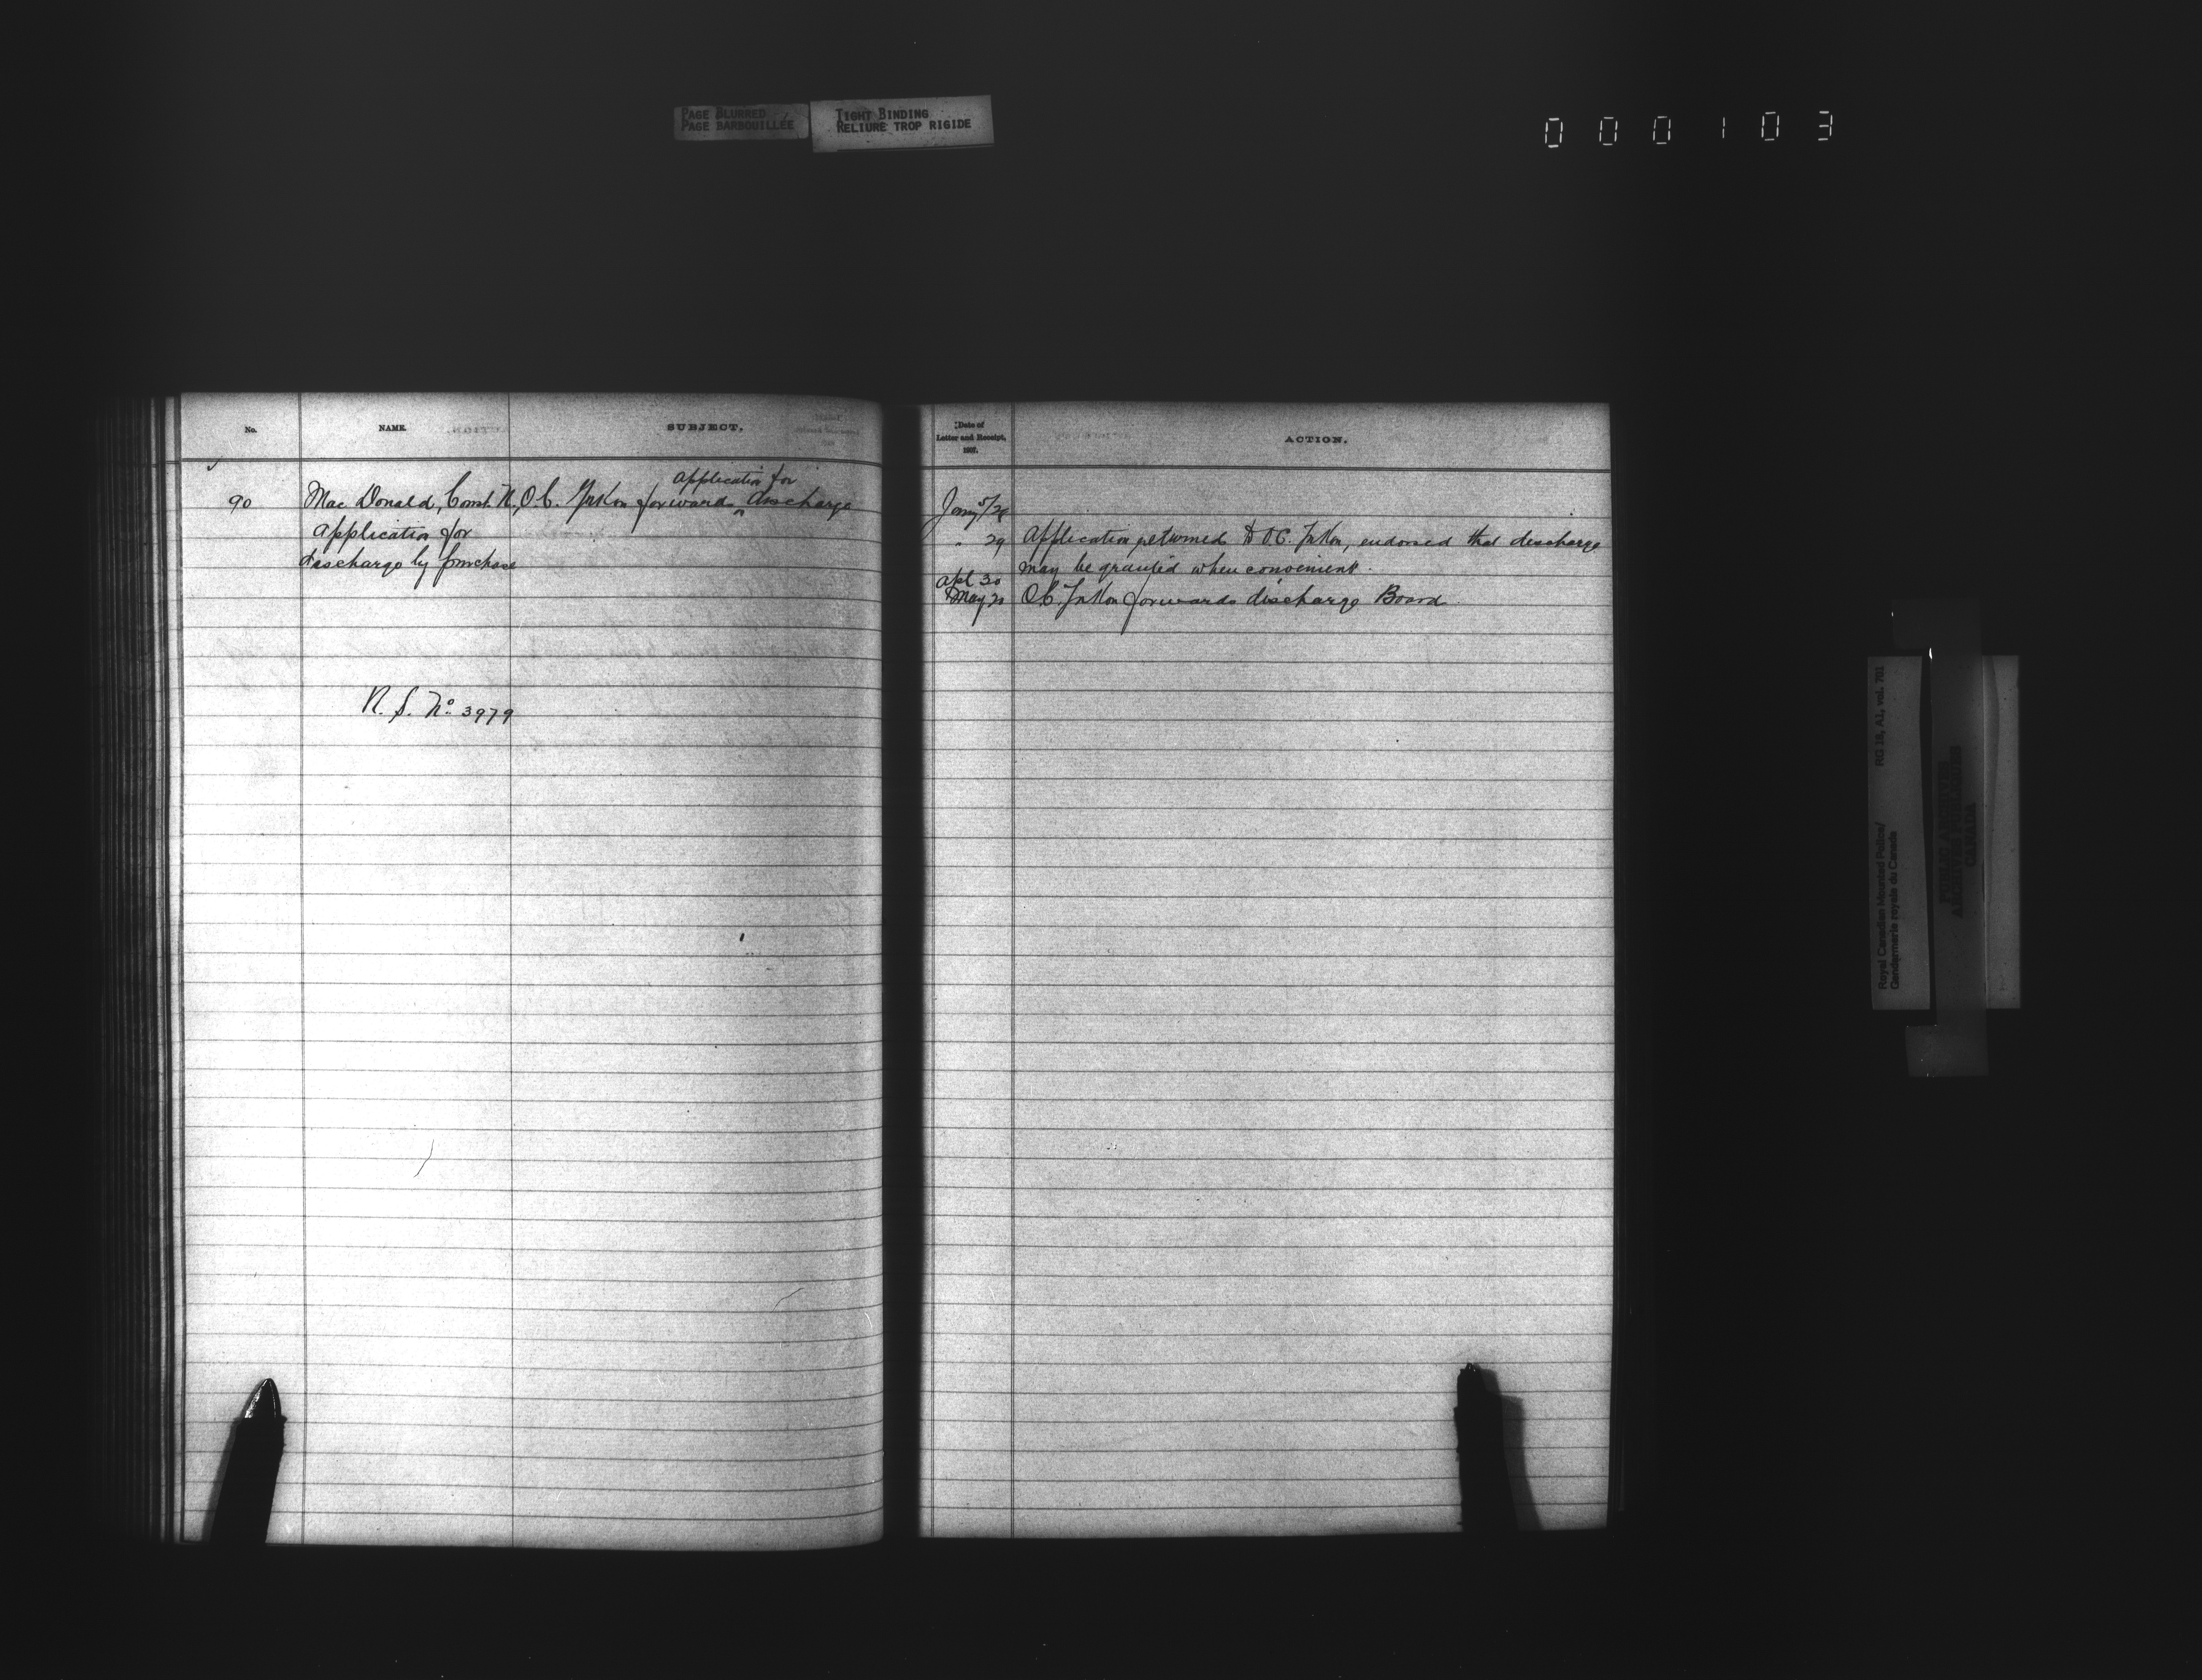 PAGE BLURRED
PAGE BARBOUILLÉE
TIGHT BINDING
RELIURE TROP RIGIDE
000103
No.
NAME.
SUBJECT.
90
Mac Donald, Const. N.
Application for
discharge by purchase
O.C. Yukon forwards application for discharge
N. S. No. 3979
Date of
Letter and Receipt,
189 .
ACTION.
Jany 5/29
" 29
Application returned to O.C. Yukon, endorsed that discharge
may be granted when convenient.
Apl 30
May 20
O.C. Yukon forwards discharge Board
Royal Canadian Mounted Police/
Gendarmerie royale du Canada
RG 18, A1, vol. 701
PUBLIC ARCHIVES
ARCHIVES PUBLIQUES
CANADA